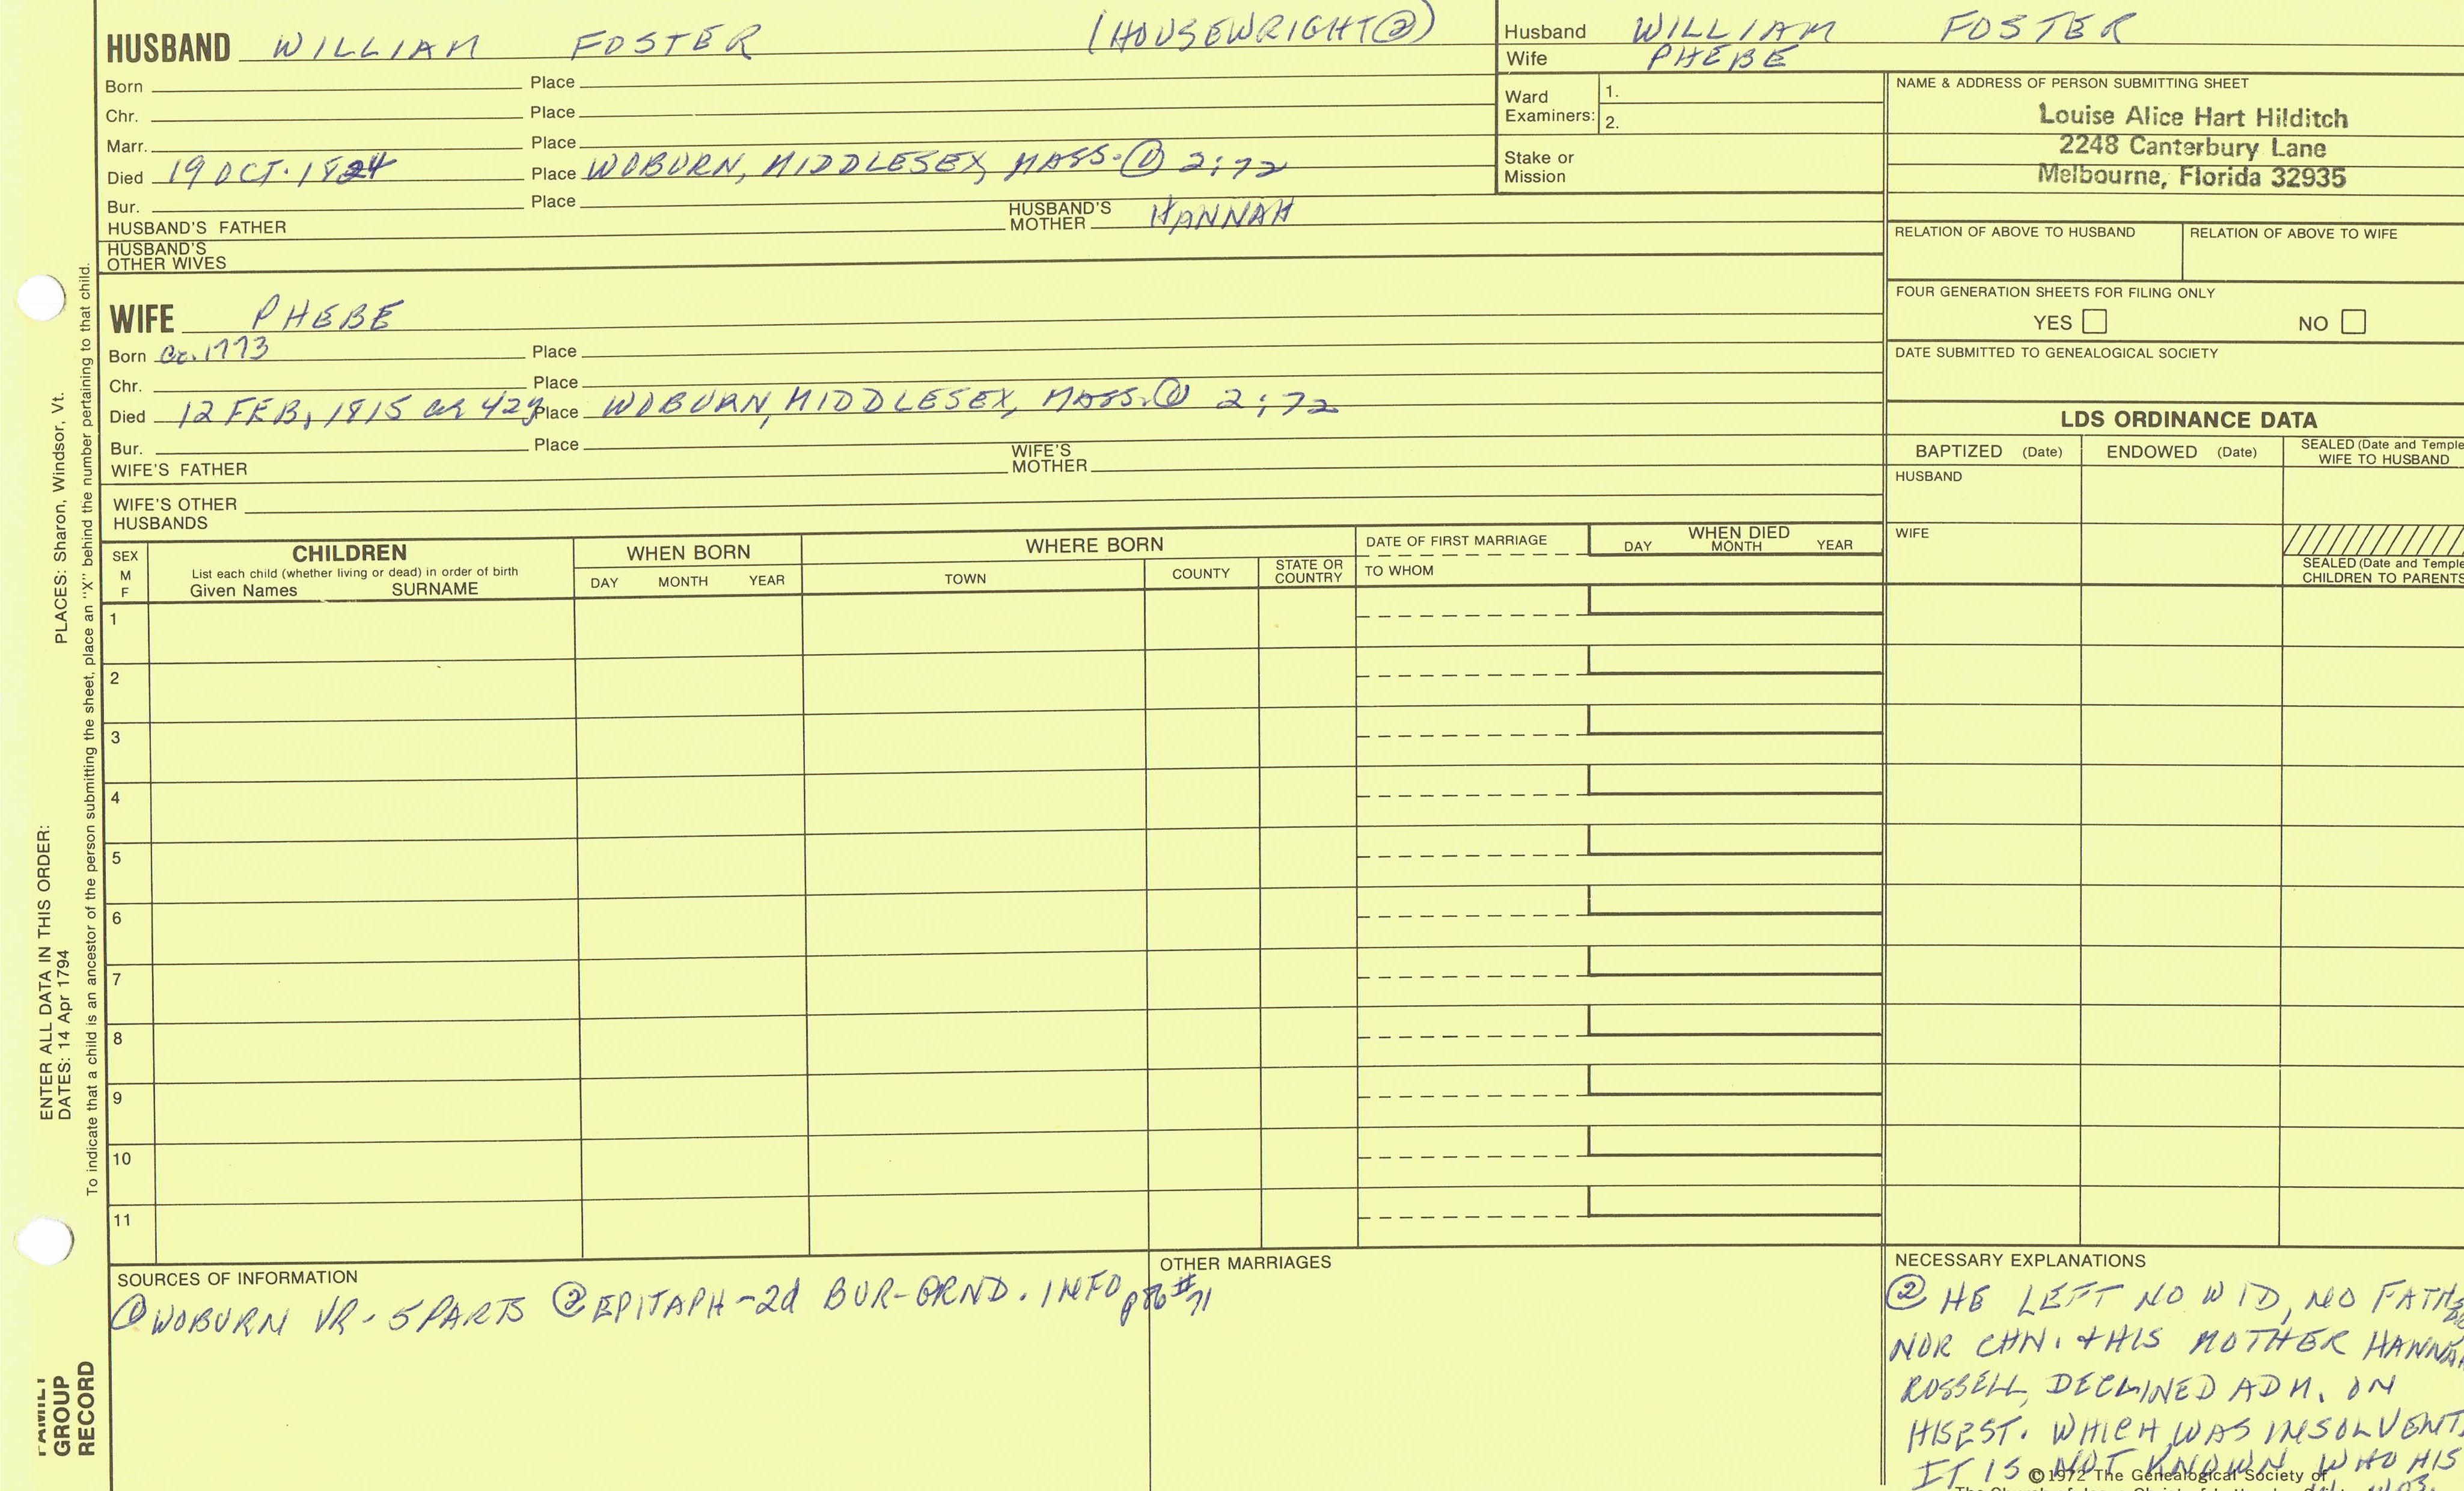 HUSBAND WILLIAM FOSTER (HOUSEWRIGHT②)
Born Place
Chr. Place
Marr. Place
Died 19 OCT. 1824 Place WOBURN, MIDDLESEX, MASS. ① 2:72
Bur. Place
HUSBAND'S FATHER HUSBAND'S MOTHER HANNAH
HUSBAND'S OTHER WIVES
WIFE PHEBE
Born Ca. 1773 Place
Chr. Place
Died 12 FEB, 1815 ae 42y Place WOBURN, MIDDLESEX, MASS. ① 2:72
Bur. Place
WIFE'S FATHER WIFE'S MOTHER
WIFE'S OTHER HUSBANDS
Husband WILLIAM FOSTER
Wife PHEBE
Ward Examiners: 1.
2.
Stake or Mission
NAME & ADDRESS OF PERSON SUBMITTING SHEET
Louise Alice Hart Hilditch
2248 Canterbury Lane
Melbourne, Florida 32935
RELATION OF ABOVE TO HUSBAND RELATION OF ABOVE TO WIFE
FOUR GENERATION SHEETS FOR FILING ONLY
YES NO
DATE SUBMITTED TO GENEALOGICAL SOCIETY
LDS ORDINANCE DATA
BAPTIZED (Date) ENDOWED (Date) SEALED (Date and Temple
WIFE TO HUSBAND
HUSBAND
WIFE
SEALED (Date and Temple
CHILDREN TO PARENTS
SEX
M
F
CHILDREN
List each child (whether living or dead) in order of birth
Given Names SURNAME
WHEN BORN
DAY MONTH YEAR
WHERE BORN
TOWN COUNTY STATE OR COUNTRY
DATE OF FIRST MARRIAGE
TO WHOM
WHEN DIED
DAY MONTH YEAR
1
2
3
4
5
6
7
8
9
10
11
SOURCES OF INFORMATION
① WOBURN VR - 5 PARTS ② EPITAPH - 2d BUR-GRND. INFO p86 #71
OTHER MARRIAGES
NECESSARY EXPLANATIONS
② HE LEFT NO WID, NO FATHER
NOR CHN. & HIS MOTHER HANNAH
ROSSELL, DECLINED ADM. ON
HIS EST. WHICH WAS INSOLVENT.
IT IS NOT KNOWN WHO HIS
© 1972 The Genealogical Society of
PLACES: Sharon, Windsor, Vt.
ENTER ALL DATA IN THIS ORDER:
DATES: 14 Apr 1794
To indicate that a child is an ancestor of the person submitting the sheet, place an "X" behind the number pertaining to that child.
FAMILY
GROUP
RECORD